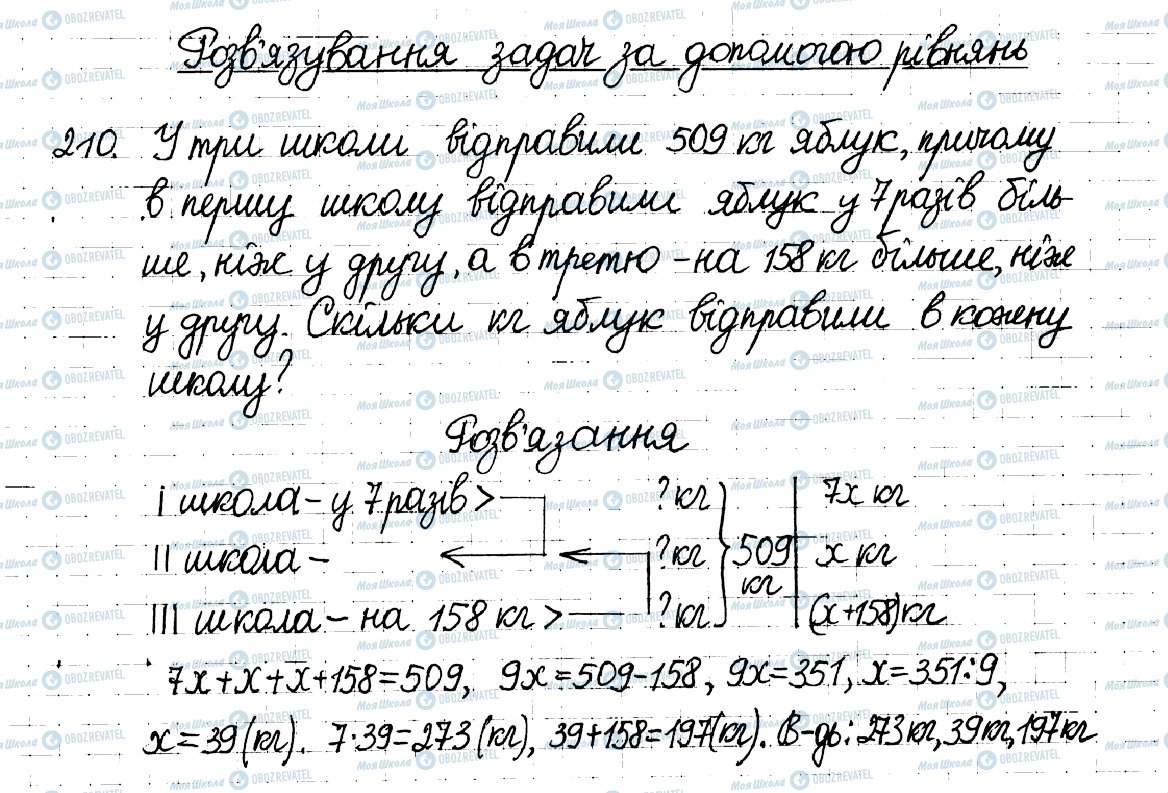 Розв'язування задач за допомогою рівнянь
210. У три школи відправили 509 кг яблук, причому
в першу школу відправили яблук у 7 разів біль-
ше, ніж у другу, а в третю - на 158 кг більше, ніж
у другу. Скільки кг яблук відправили в кожну
школу?
Розв'язання
I школа - у 7 разів > ? кг 7x кг
II школа - ? кг 509 кг x кг
III школа - на 158 кг > ? кг (x+158) кг
7x+x+x+158=509, 9x=509-158, 9x=351, x=351:9,
x=39 (кг). 7·39=273 (кг), 39+158=197 (кг). В-дь: 273 кг, 39 кг, 197 кг